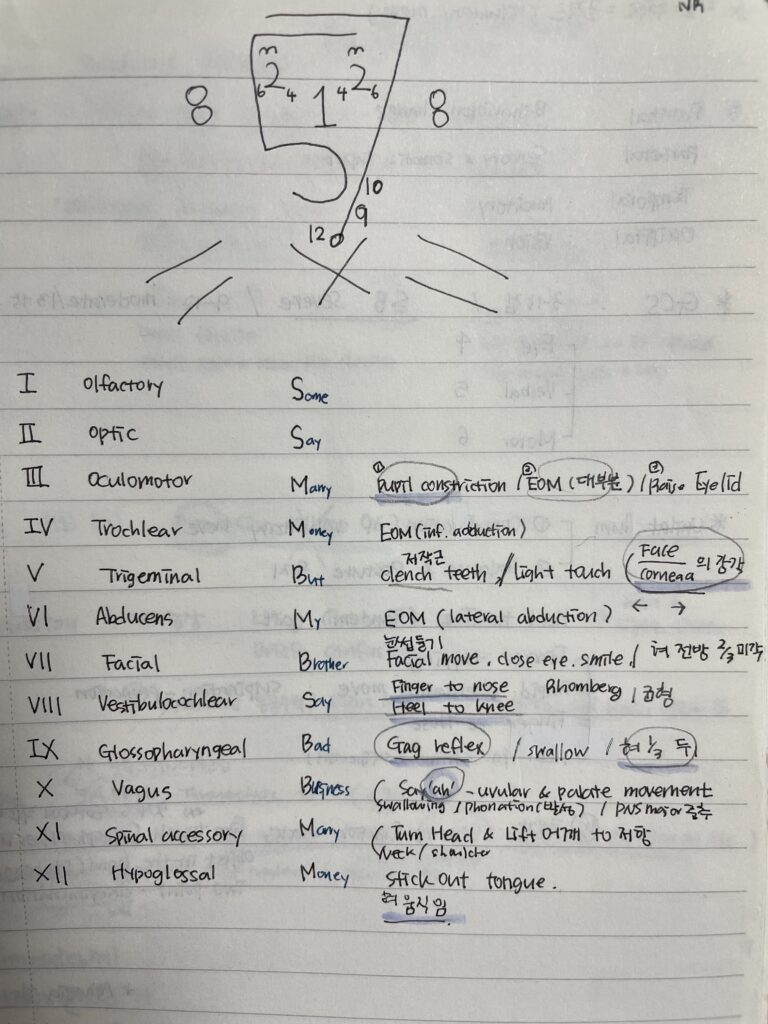 NR
m m
6 2 4 1 4 2 6
8 8
5
10
9
12
I Olfactory Some
II Optic Say
III Oculomotor Marry ① Pupil constriction / ② EOM (대부분) / ③ Raise Eyelid
IV Trochlear Money EOM (inf. adduction)
저작근
V Trigeminal But clench teeth / light touch (Face/cornea 의 감각
VI Abducens My EOM (lateral abduction) ← →
눈썹 들기
VII Facial Brother Facial move. close eye. smile. / 혀 전방 ⅔ 미각
VIII Vestibulocochlear Say Finger to nose Rhomberg / 균형
Heel to knee
IX Glossopharyngeal Bad Gag reflex / swallow / 혀 ⅓ 뒤
X Vagus Business (Say 'ah' - uvular & palate movement
swallowing / phonation (발성) / PNS major 구축
XI Spinal accessory Many (Turn Head & Lift 어깨 to 저항
Neck / shoulder
XII Hypoglossal Money stick out tongue.
혀 움직임